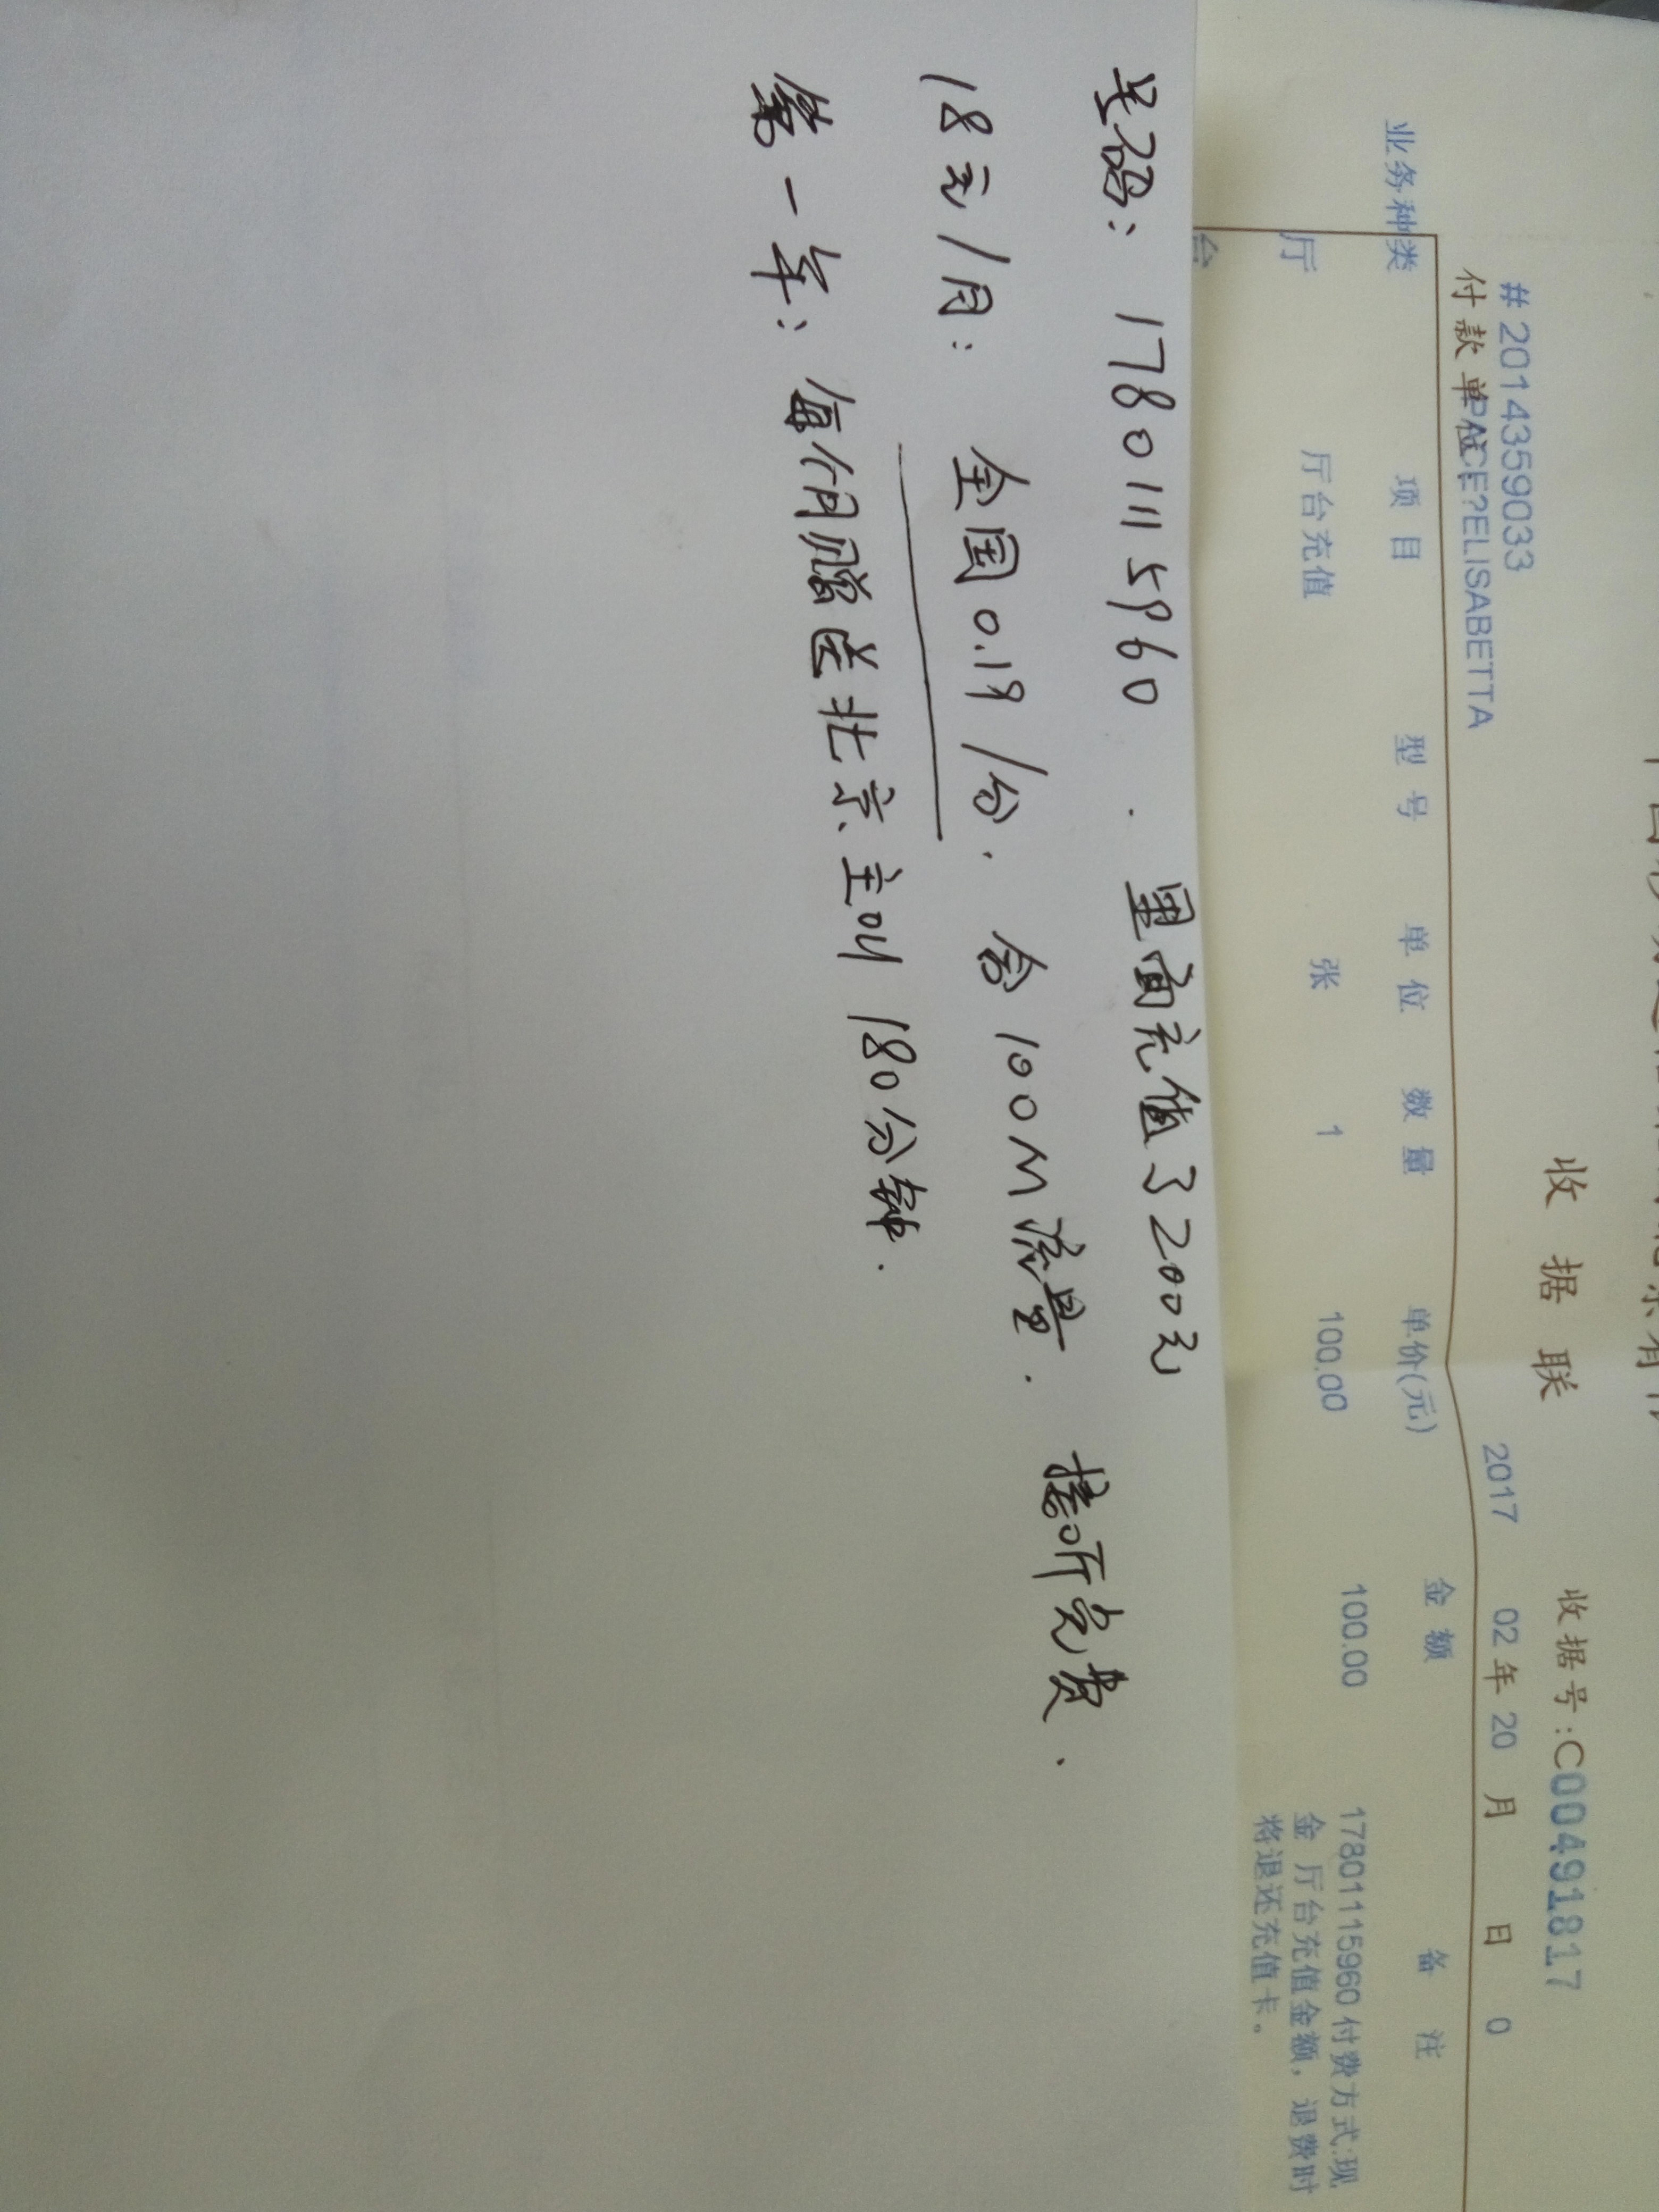 收据联
收据号:C00491817
#2014359033
2017 02年20月 日 0
付款单位PACE?ELISABETTA
业务种类 项目 型号 单位 数量 单价(元) 金额 备注
厅 厅台充值 张 1 100.00 100.00 17801115960付费方式:现
金 厅台充值金额，退费时
台 将退还充值卡。
号码: 17801115960. 里面充值3200元
18元/月: 全国0.19/分. 含100M流量. 接听免费.
第一年: 每个月赠送北京主叫180分钟.